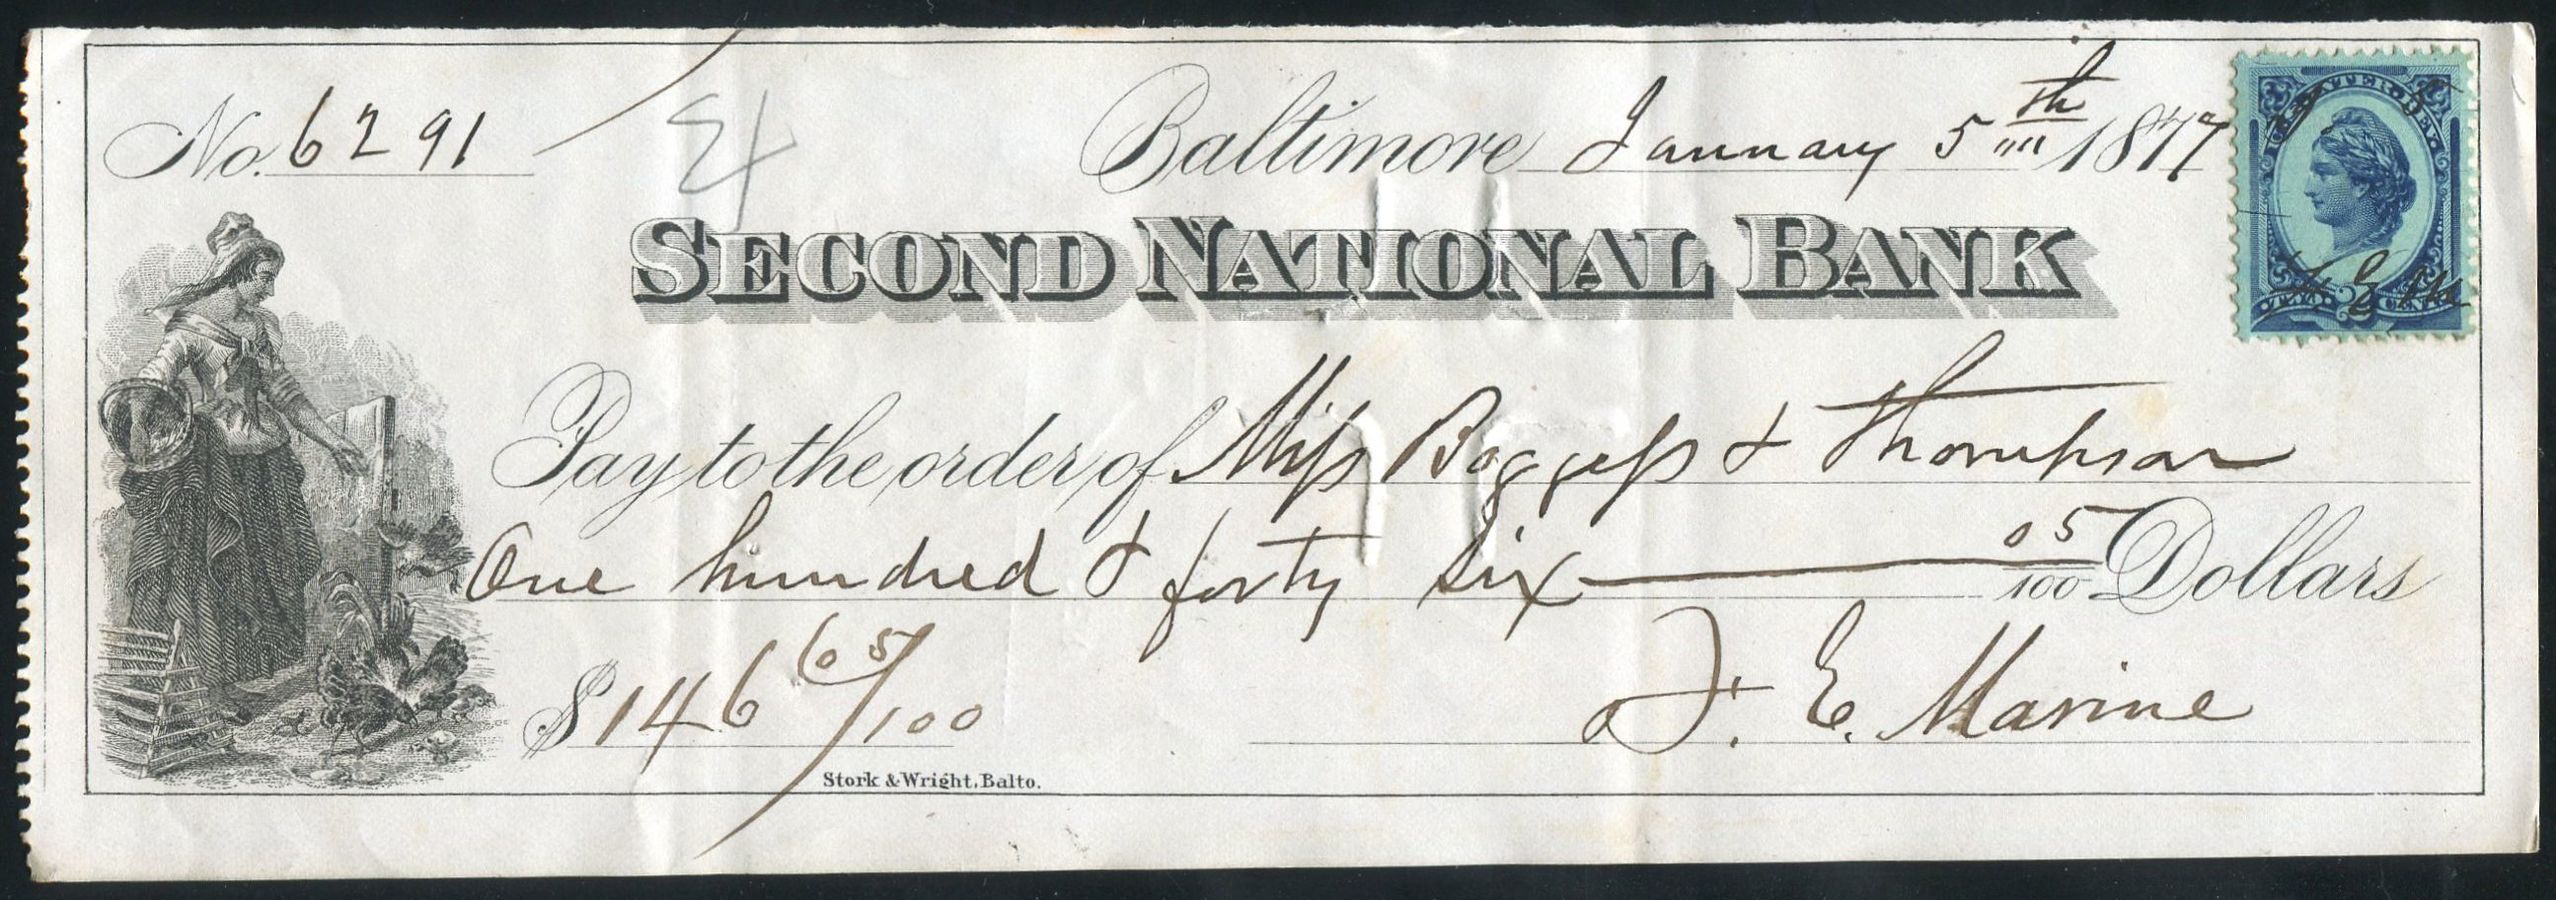 No. 6291
Baltimore January 5th 1877
SECOND NATIONAL BANK
Pay to the order of Miss Boggess & Thompson
One hundred & forty six 05/100 Dollars
$146 05/100
F. E. Marine
Stork & Wright, Balto.
U.S. INTER. REV.
TWO CENTS
F E M